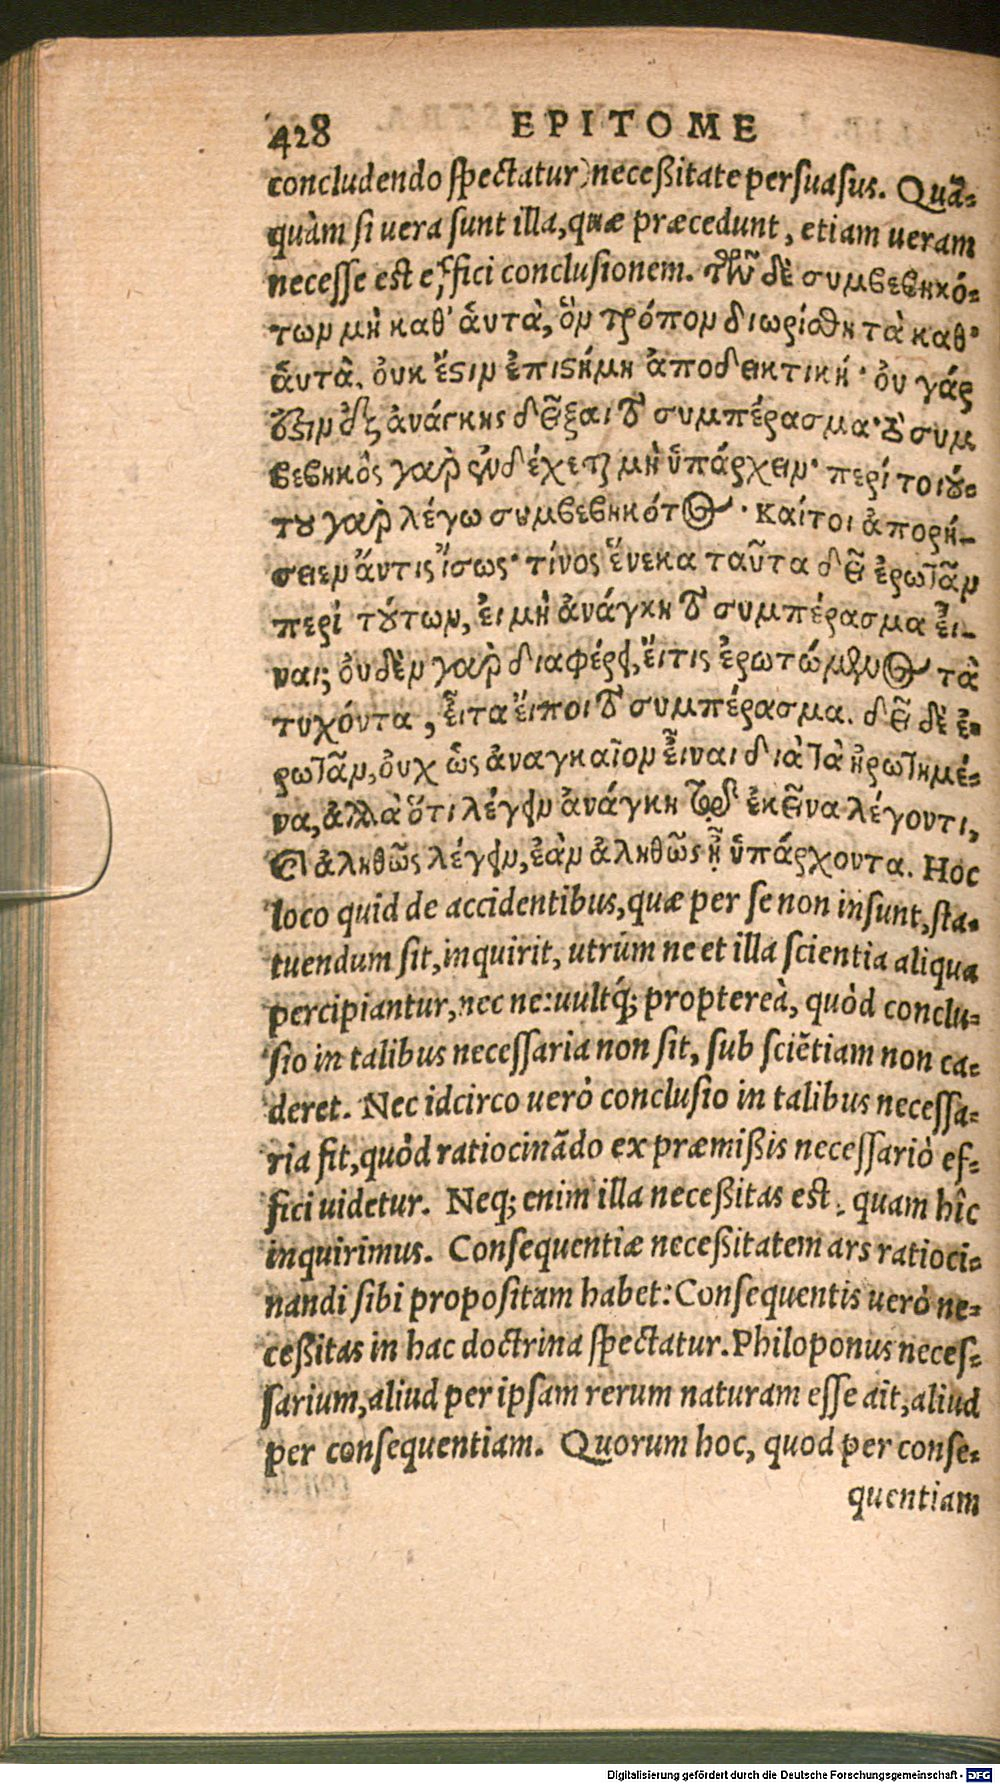 428 EPITOME
concludendo ſpectatur) neceßitate perſuaſus. Quã-
quàm ſi uera ſunt illa, quæ præcedunt, etiam ueram
neceſſe est effici concluſionem. τῶν δὲ συμβεβηκό-
των μὴ καθ’ ἁυτὰ, ὃν τρόπον διωρίσθη τὰ καθ’
ἁυτὰ, ὀυκ ἔστιν ἐπιστήμη ἀποδεικτική· ὀυ γάρ
ἔστιν ἐξ ἀνάγκης δεῖξαι τὸ συμπέρασμα· τὸ συμ
βεβηκὸς γαρ ἐνδέχεται μὴ ὑπάρχειν· περί τοιού-
του γαρ λέγω συμβεβηκότος. καίτοι ἀπορή-
σειεν ἄντις ἴσως· τίνος ἕνεκα ταῦτα δεῖ ἐρωτᾶν
περί τούτων, ἐι μὴ ἀνάγκη τὸ συμπέρασμα εἶι-
ναι; ὀυδὲν γαρ διαφέρει, ἔιτις ἐρωτώμενος τὰ
τυχόντα, εἶιτα ἔιποι τὸ συμπέρασμα. δεῖ δὲ ἐ-
ρωτᾶν, ὀυχ ὡς ἀναγκαῖον εἶιναι διὰ τὰ ἠρωτημέ-
να, ἀλλὰ ὅτι λέγειν ἀνάγκη τῷ ἐκεῖνα λέγοντι,
καὶ ἀληθῶς λέγειν, ἐὰν ἀληθῶς ᾖ ὑπάρχοντα. Hoc
loco quid de accidentibus, quæ per ſe non inſunt, ſta-
tuendum ſit, inquirit, utrùm ne et illa ſcientia aliqua
percipiantur, nec ne: uultq́; proptereà, quòd conclu-
ſio in talibus neceſſaria non ſit, ſub ſciẽtiam non ca-
deret. Nec idcirco uerò concluſio in talibus neceſſa-
ria fit, quòd ratiocinãdo ex præmißis neceſſariò ef-
fici uidetur. Neq; enim illa neceßitas est, quam hîc
inquirimus. Conſequentiæ neceßitatem ars ratioci-
nandi ſibi propoſitam habet: Conſequentis uerò ne-
ceßitas in hac doctrina ſpectatur. Philoponus neceſ-
ſarium, aliud per ipſam rerum naturam eſſe ait, aliud
per conſequentiam. Quorum hoc, quod per conſe-
quentiam
Digitalisierung gefördert durch die Deutsche Forschungsgemeinschaft - DFG